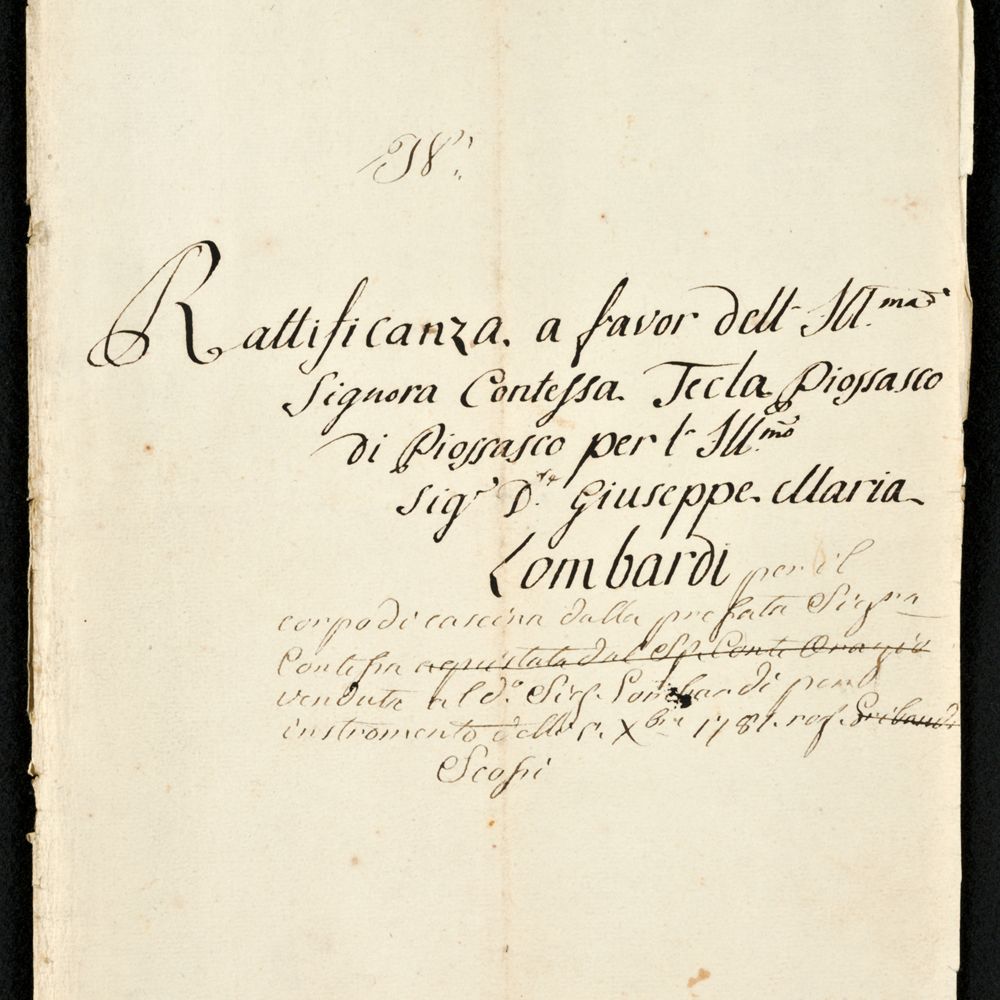 Rattificanza. a favor dell Ill.ma
Signora Contessa Tecla Piossasco
di Piossasco per l Ill.mo
Sig.r D.r Giuseppe Maria
Lombardi per il
corpo di cascina dalla prefata Sig.ra
Contessa aquistata dal Sg. Conte Orazio
venduta al d.o Sig. Lombardi per
instromento delli Xbre 1781. rog. Gribaudi
Scossi